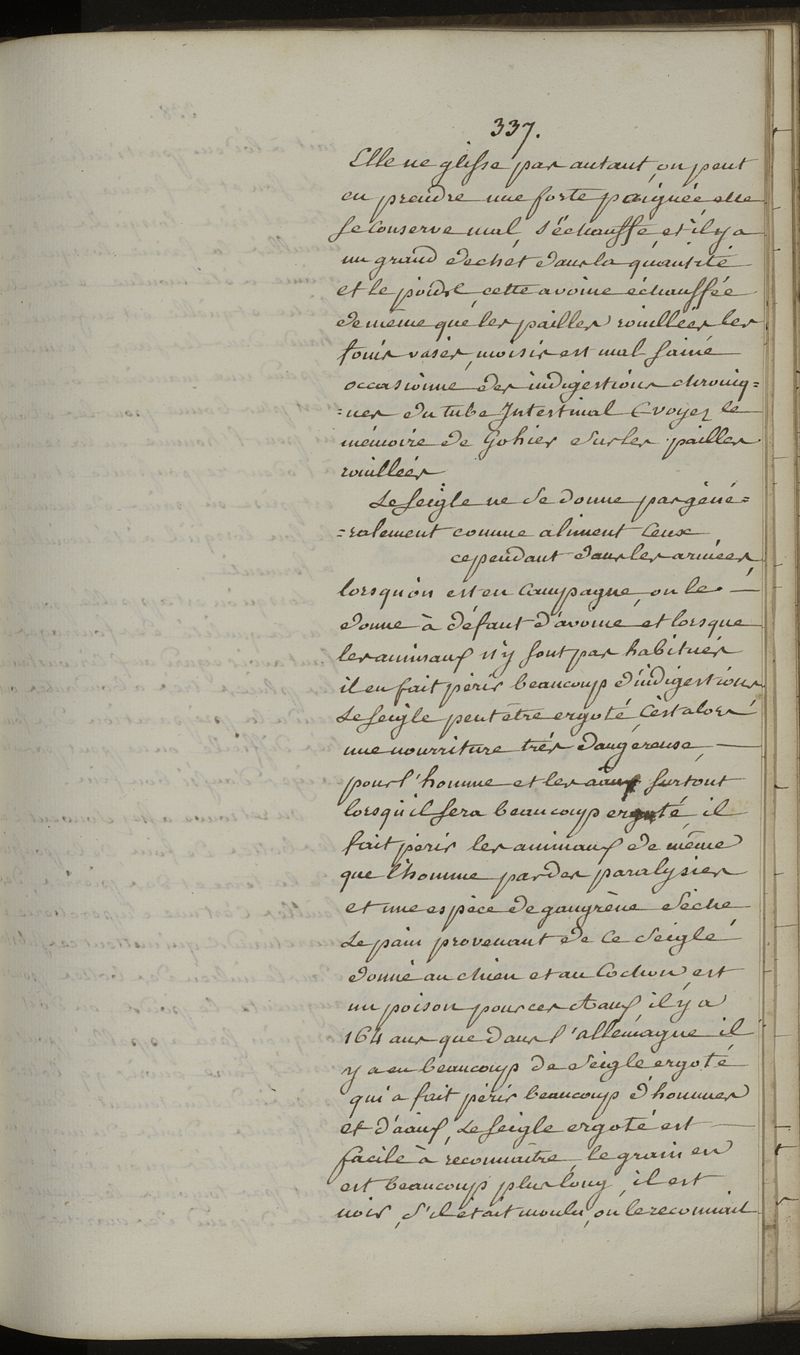 337.
Elle ne glisse pas autant, on peut
en prendre une forte poignée, elle
se conserve mal, s'échauffe et il y a
un grand dechet dans la quantité
et le poids, cette avoine échauffée
de même que les pailles rouillées les
foins vasés, moisis est mal saine
occasionne des indigestions chroniq=
=ues du tube Intestinal (voyez le
mémoire de Gohier sur les pailles
rouillées
Le seigle ne se donne pas géné=
=ralement comme aliment Ceux
cependant dans les armées
lorsqu'on est en Campagne, on le —
donne à défaut d'avoine et lorsque
les animaux n'y sont pas habitués
il en fait périr beaucoup d'indigestions
Le seigle peut être ergoté, c'est alors
une nourriture très dangereuse, —
pour l'homme et les aaux surtout
lorsqu'il sera beaucoup ergoté, il
fait périr les animaux de même
que l'homme par des paralysies
et une espèce de gangrène sèche
Le pain provenant de ce seigle
donné au chien et au Cochon, est
un poison pour ces Aaux il y a
164 ans que dans l'allemagne il
y a eu beaucoup de seigle ergoté
qui a fait périr beaucoup d'hommes
et d'aaux, Le seigle ergoté est —
facile à reconnaître, le grain en
est beaucoup plus long, il est
noir, s'il était moulu, on le reconnait